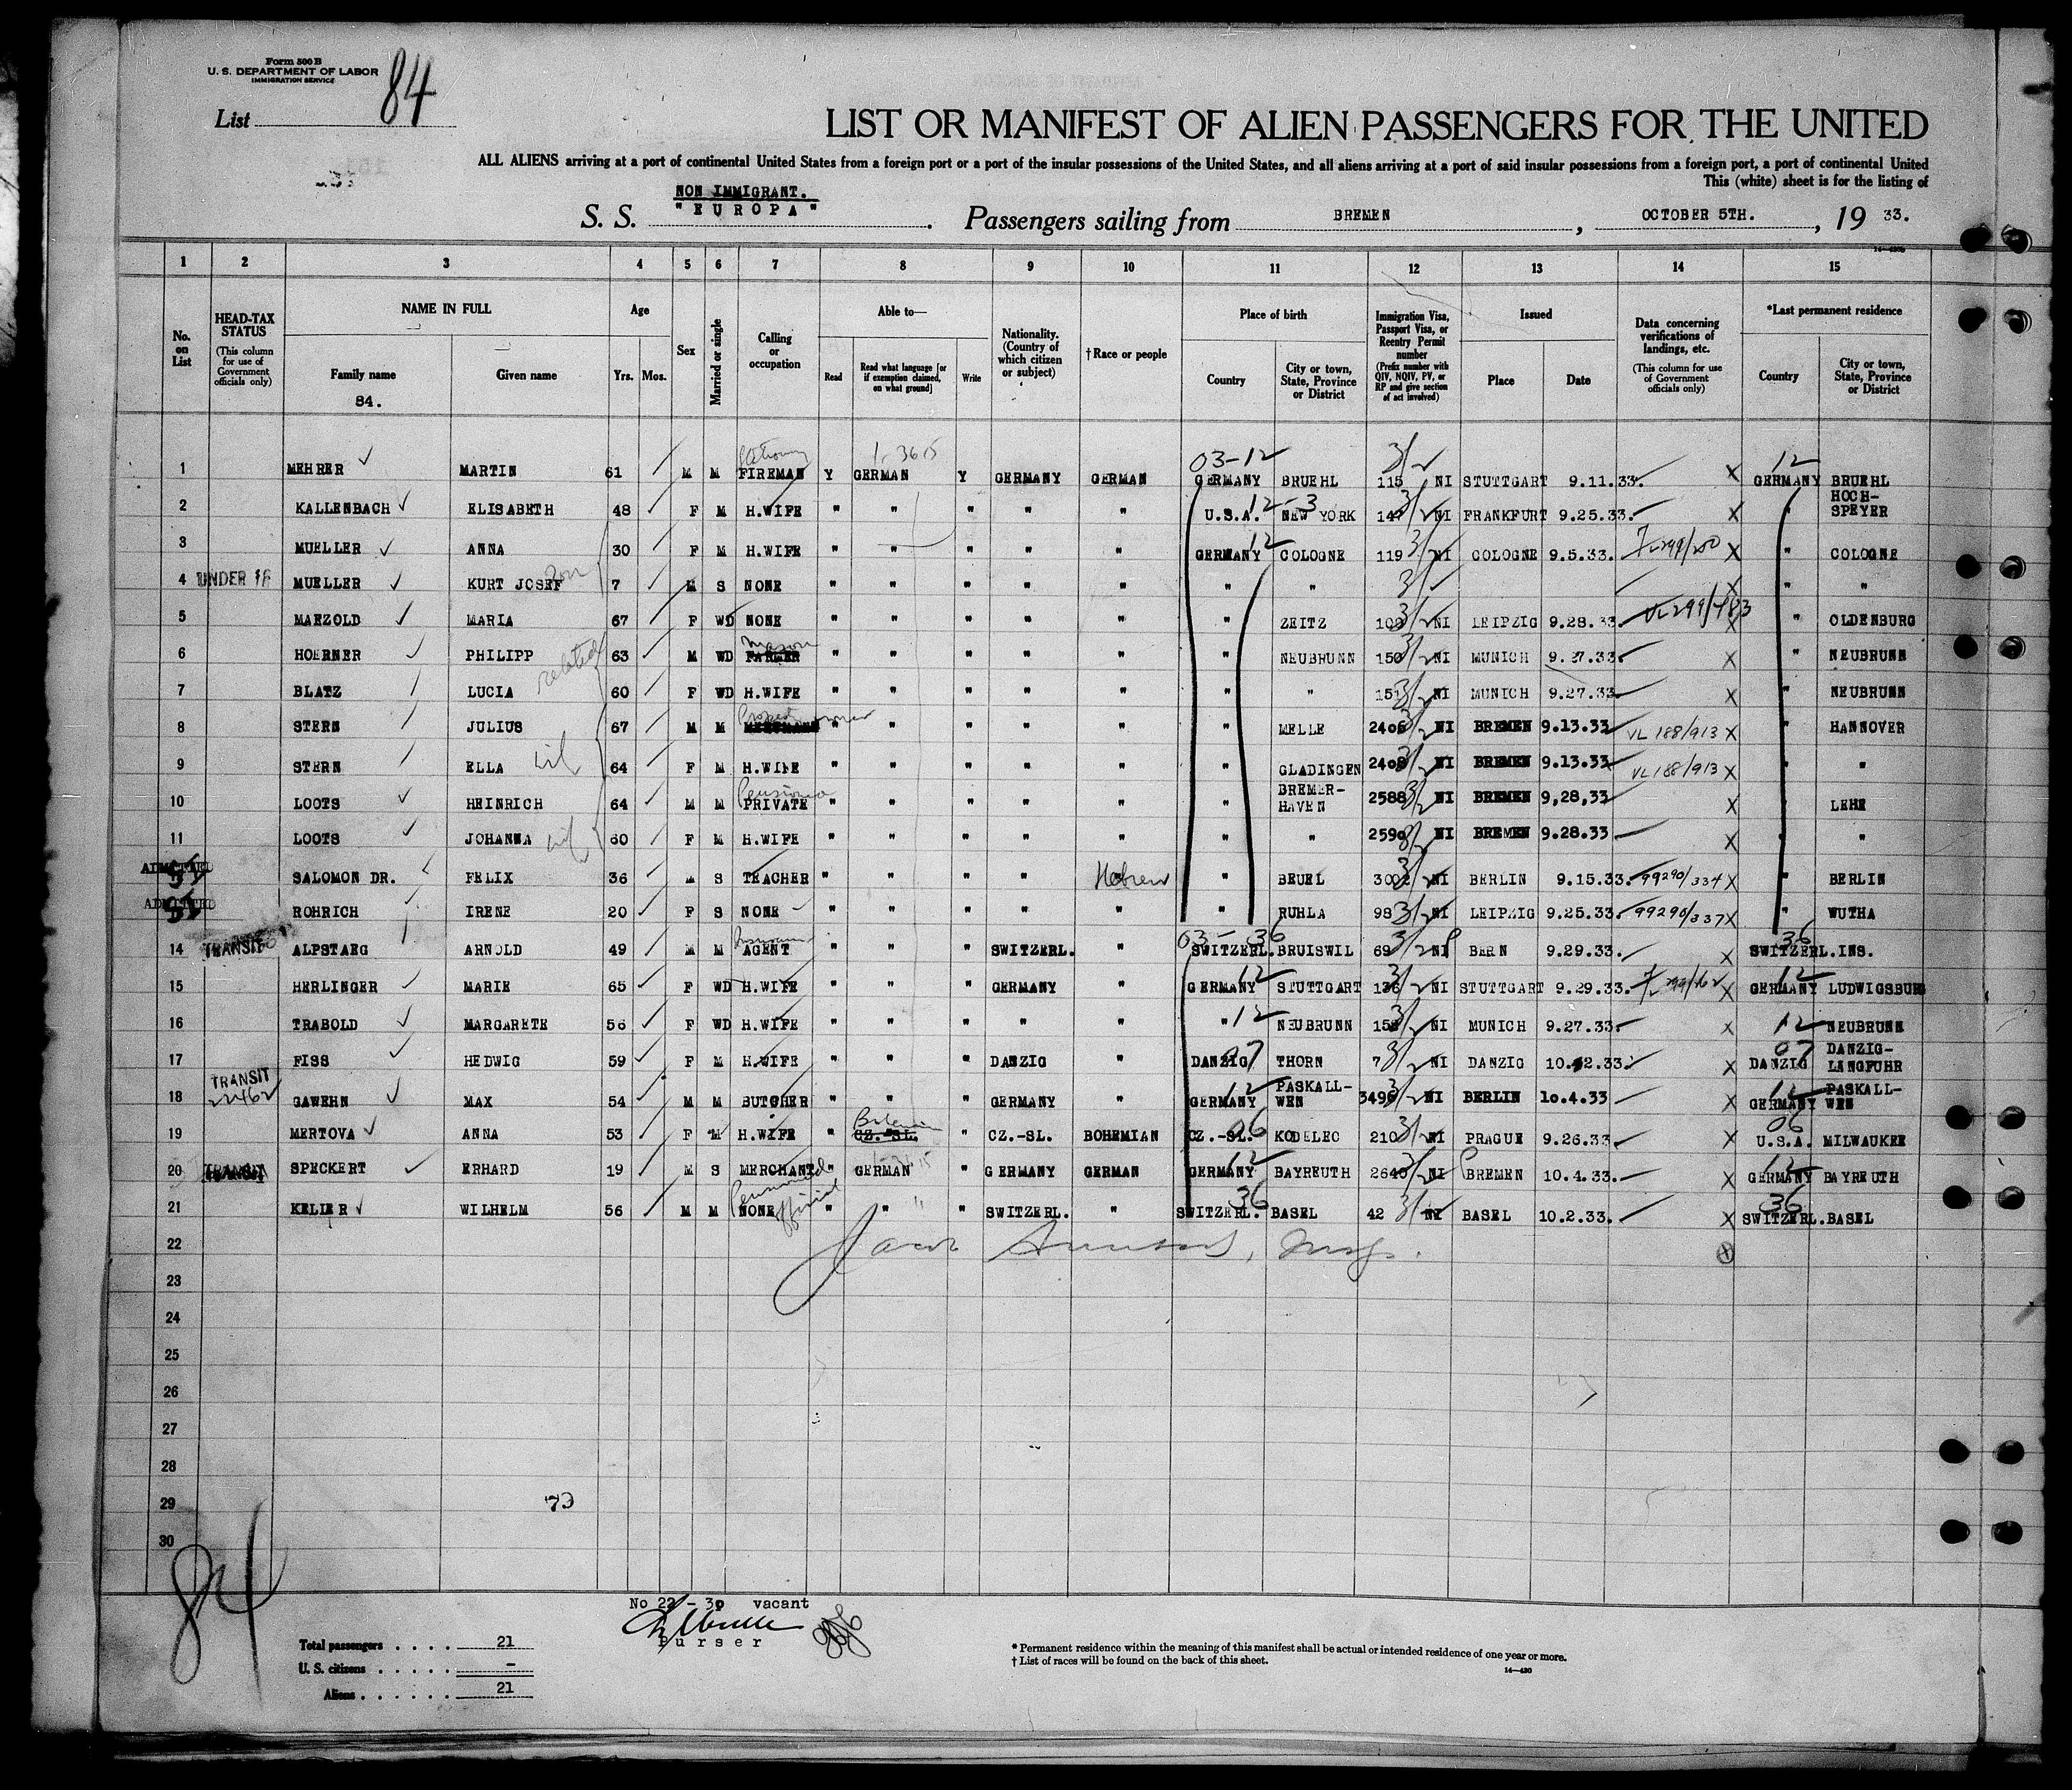 Form 500 B
U. S. DEPARTMENT OF LABOR
IMMIGRATION SERVICE
List 84
LIST OR MANIFEST OF ALIEN PASSENGERS FOR THE UNITED
ALL ALIENS arriving at a port of continental United States from a foreign port or a port of the insular possessions of the United States, and all aliens arriving at a port of said insular possessions from a foreign port, a port of continental United
This (white) sheet is for the listing of
NON IMMIGRANT.
S. S. "EUROPA". Passengers sailing from BREMEN, OCTOBER 5TH., 19 33.
1 2 3 4 5 6 7 8 9 10 11 12 13 14 15
No. on List
HEAD-TAX STATUS (This column for use of Government officials only)
NAME IN FULL Family name Given name
84.
Age Yrs. Mos.
Sex
Married or single
Calling or occupation
Able to— Read Read what language [or if exemption claimed, on what ground] Write
Nationality. (Country of which citizen or subject)
†Race or people
Place of birth Country City or town, State, Province or District
Immigration Visa, Passport Visa, or Reentry Permit number (Prefix number with QIV, NQIV, PV, or RP and give section of act involved)
Issued Place Date
Data concerning verifications of landings, etc. (This column for use of Government officials only)
*Last permanent residence Country City or town, State, Province or District
03-12 3/2 12
1 MEHRER MARTIN 61 M M FIREMAN Y GERMAN Y GERMANY GERMAN GERMANY BRUEHL 115 NI STUTTGART 9.11.33. X GERMANY BRUEHL
2 KALLENBACH ELISABETH 48 F M H.WIFE " " " " " U.S.A. NEW YORK 147 NI FRANKFURT 9.25.33. X " HOCH-SPEYER
3 MUELLER ANNA 30 F M H.WIFE " " " " " GERMANY 12 COLOGNE 119 NI COLOGNE 9.5.33. X " COLOGNE
4 UNDER 16 MUELLER KURT JOSEF son 7 M S NONE " " " " " " " X " "
5 MAEZOLD MARIA 67 F WD NONE " " " " " " ZEITZ NI LEIPZIG 9.28.33. VL 299/483 X " OLDENBURG
6 HOERNER PHILIPP related 63 M WD FARMER Mason " " " " " " NEUBRUNN 150 NI MUNICH 9.27.33. X " NEUBRUNN
7 BLATZ LUCIA 60 F WD H.WIFE " " " " " " " 151 NI MUNICH 9.27.33. X " NEUBRUNN
8 STERN JULIUS 67 M M " " " " " " MELLE NI BREMEN 9.13.33 VL 188/913 X " HANNOVER
9 STERN ELLA 64 F M H.WIFE " " " " " " GLADINGEN NI BREMEN 9.13.33 VL 188/913 X " "
10 LOOTS HEINRICH 64 M M PRIVATE " " " " " " BREMER-HAVEN 2588 NI BREMEN 9,28,33 X " LEHE
11 LOOTS JOHANNA 60 F M H.WIFE " " " " " " " 2590 NI BREMEN 9.28.33 X " "
ADMITTED SALOMON DR. FELIX 36 M S TEACHER " " " " Hebrew " BEUEL 3002 NI BERLIN 9.15.33. 99290/334 X " BERLIN
ADMITTED ROHRICH IRENE 20 F S NONE " " " " " " RUHLA 98 NI LEIPZIG 9.25.33. 99290/337 X " WUTHA
03-36 36
14 TRANSIT ALPSTAEG ARNOLD 49 M M AGENT " " " SWITZERL. " SWITZERL. BRUISWIL 69 NI BERN 9.29.33. X SWITZERL. INS.
15 HERLINGER MARIE 65 F WD H.WIFE " " " GERMANY " GERMANY 12 STUTTGART 136 NI STUTTGART 9.29.33. X GERMANY 12 LUDWIGSBURG
16 TRABOLD MARGARETE 56 F WD H.WIFE " " " " " " 12 NEUBRUNN NI MUNICH 9.27.33. X 12 NEUBRUNN
17 FISS HEDWIG 59 F M H.WIFE " " " DANZIG " DANZIG 07 THORN 7 NI DANZIG 10.2.33. X DANZIG 07 DANZIG-LANGFUHR
TRANSIT 22462
18 GAWEHN MAX 54 M M BUTCHER " " " GERMANY " GERMANY 12 PASKALL-WEN 3496 NI BERLIN 10.4.33 X GERMANY 12 PASKALL-WEN
19 MERTOVA ANNA 53 F M H.WIFE " CZ.-SL. " CZ.-SL. BOHEMIAN CZ.-SL. 06 KODELEC 210 NI PRAGUE 9.26.33. X U.S.A. 06 MILWAUKEE
20 TRANSIT SPECKERT ERHARD 19 M S MERCHANT " GERMAN " GERMANY GERMAN GERMANY 12 BAYREUTH 2640 NI BREMEN 10.4.33. X GERMANY 12 BAYREUTH
21 KELLER WILHELM 56 M M NONE Pensioned official " " " SWITZERL. " SWITZERL. 36 BASEL 42 NI BASEL 10.2.33. X SWITZERL. 36 BASEL
22
23
24
25
26
27
28
29
30
84
No 22 - 30 vacant
Purser
Total passengers . . . . 21
U. S. citizens . . . . . -
Aliens . . . . . . 21
* Permanent residence within the meaning of this manifest shall be actual or intended residence of one year or more.
† List of races will be found on the back of this sheet.
14—430